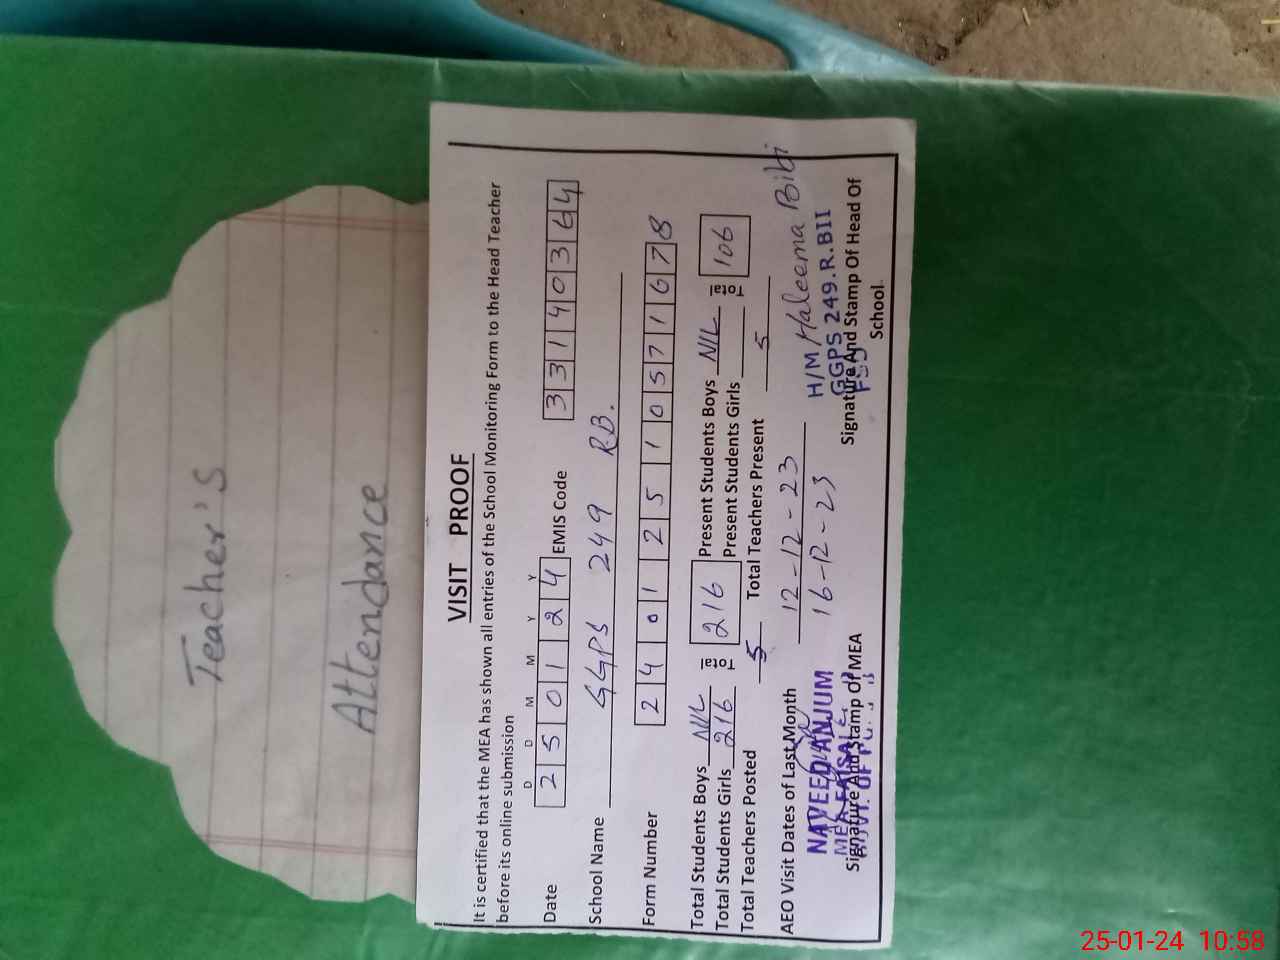 Teacher's
Attendance
VISIT PROOF
It is certified that the MEA has shown all entries of the School Monitoring Form to the Head Teacher
before its online submission
D D M M Y Y
Date 2 5 0 1 2 4 EMIS Code 3 3 1 4 0 3 6 4
School Name GGPS 249 RB.
Form Number 2 4 0 1 2 5 1 0 5 7 1 6 7 8
Total Students Boys NIL Total 216 Present Students Boys NIL Total 106
Total Students Girls 216 Present Students Girls
Total Teachers Posted 5 Total Teachers Present 5
AEO Visit Dates of Last Month 12-12-23
16-12-23
NAVEED ANJUM
MEA
Signature And Stamp of MEA
H/M Haleema Bibi
GGPS 249.R.BII
Signature And Stamp Of Head Of
School.
25-01-24 10:58